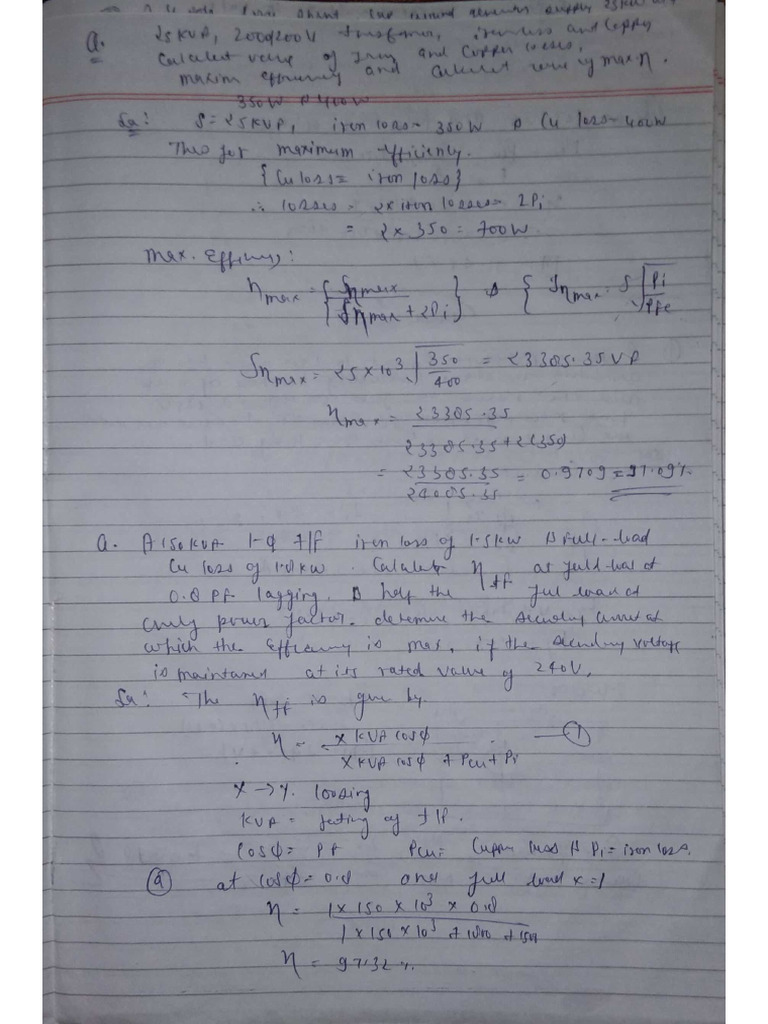 Q. 25 KVA, 2000/200V transformer, iron loss and Copper
Calculate value of Iron and Copper losses,
maxim efficiency and Calculate value of max η.
350W & 400W
Sol: S = 25KVA, iron loss = 350W & Cu loss = 400W
Thus for maximum efficiency.
{Cu loss = iron loss}
∴ losses = 2x iron losses = 2Pi
= 2 x 350 = 700W.
Max. Efficiency:
ηmax = {Sηmax / Sηmax + 2Pi} & {Sηmax = S √Pi/Pfe
Sηmax = 25 x 10³ √350/400 = 23385.35 VA
ηmax = 23385.35
23385.35 + 2(350)
= 23385.35 = 0.9709 = 97.09%
24085.35
Q. A 150 KVA 1-φ T/f iron loss of 1.5kw & full-load
Cu loss of 1.8kw. Calculate η at full load
0.8 Pf lagging. & half the full load at
unity power factor. determine the secondary current at
which the efficiency is max, if the secondary voltage
is maintained at its rated value of 240V.
Sol: The η is give by
η = x KVA cosφ —①
x KVA cosφ + Pcu + Pi
x → % loading
KVA = rating of T/P.
cosφ = Pf Pcu = Cupper loss & Pi = iron loss.
(a) at cosφ = 0.8 and full load x = 1
η = 1 x 150 x 10³ x 0.8
1 x 150 x 10³ + 1800 + 1500
η = 97.32%